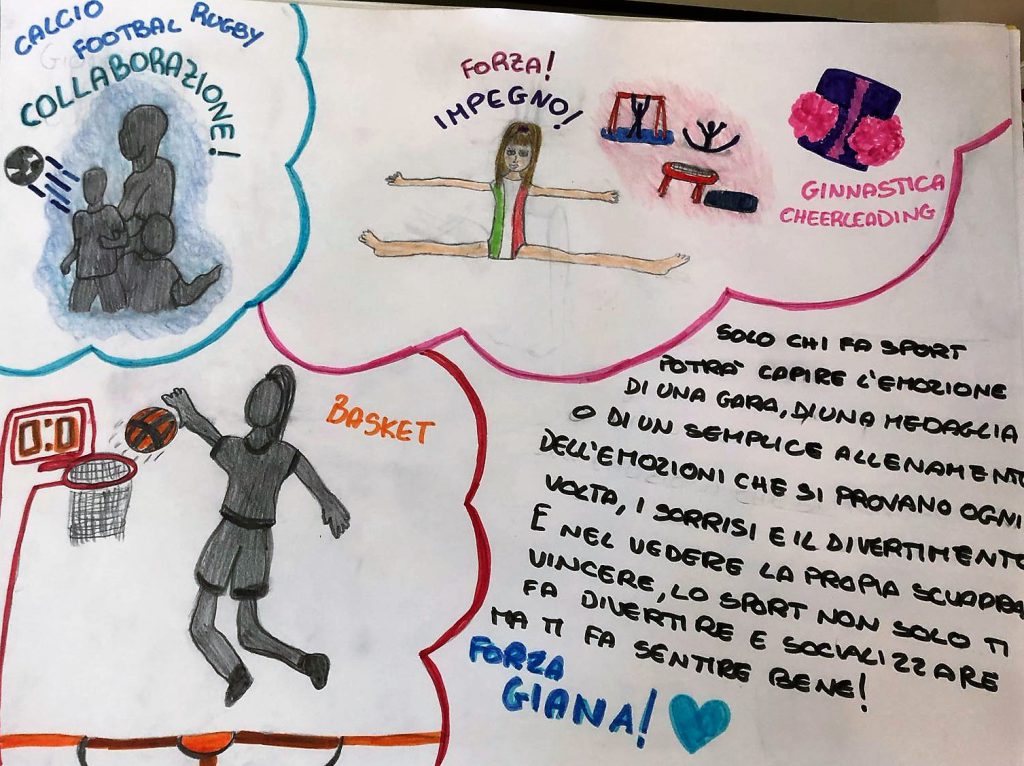 CALCIO
FOOTBAL RUGBY
COLLABORAZIONE!
FORZA!
IMPEGNO!
GINNASTICA
CHEERLEADING
0:0
BASKET
SOLO CHI FA SPORT
POTRÀ CAPIRE L'EMOZIONE
DI UNA GARA, DI UNA MEDAGLIA
O DI UN SEMPLICE ALLENAMENTO
DELL'EMOZIONI CHE SI PROVANO OGNI
VOLTA, I SORRISI E IL DIVERTIMENTO
E NEL VEDERE LA PROPIA SQUADRA
VINCERE, LO SPORT NON SOLO TI
FA DIVERTIRE E SOCIALIZZARE
MA TI FA SENTIRE BENE!
FORZA
GIANA!